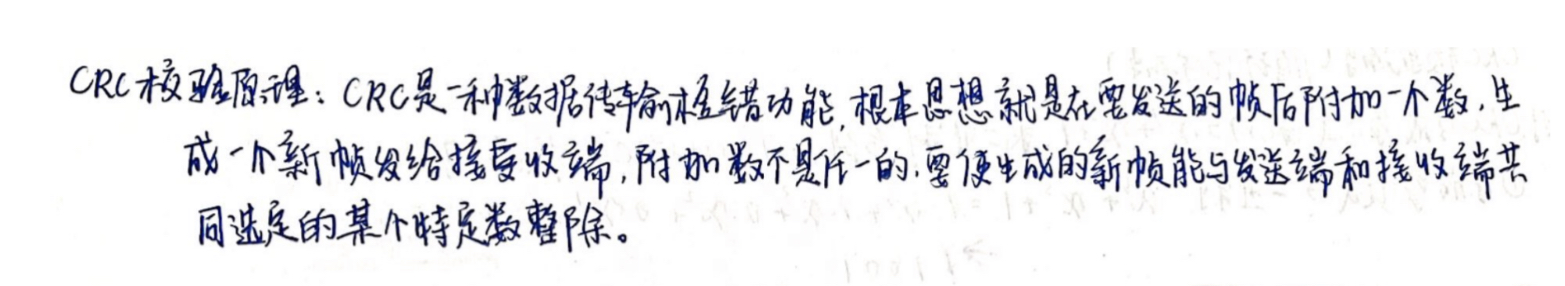 CRC校验原理：CRC是一种数据传输检错功能，根本思想就是在要发送的帧后附加一个数，生
成一个新帧发给接受收端，附加数不是任一的，要使生成的新帧能与发送端和接收端共
同选定的某个特定数整除。